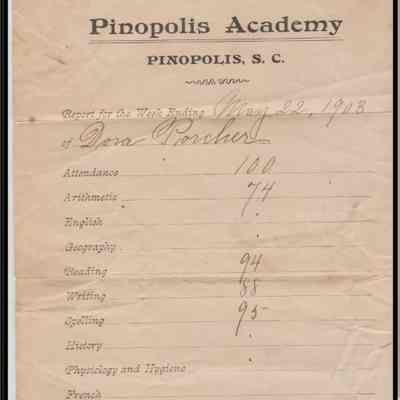 Pinopolis Academy
PINOPOLIS, S. C.
Report for the Week Ending May 22, 1903
of Dora Porcher
Attendance 100
Arithmetic 74
English
Geography
Reading 94
Writing 88
Spelling 95
History
Physiology and Hygiene
French